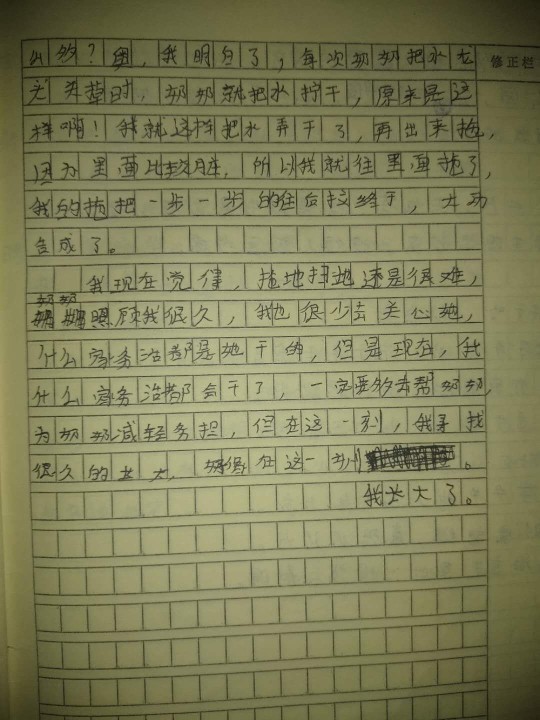 么多？奥，我明白了，每次奶奶把水龙
关掉时，奶奶就把水拧干，原来是这
样啊！我就这样把水弄干了，再出来拖，
因为里面比较脏，所以我就往里面拖了，
我的拖把一步一步的往后拉终于，大功
告成了。
我现在觉得，拖地扫地还是很难，
奶奶照顾我很久，我也很少去关心她，
什么家务活都是她干的，但是现在，我
什么家务活都会干了，一定要多去帮奶奶，
为奶奶减轻负担，但在这一刻，我寻找
很久的长大，好像在这一刻。
我长大了。
修正栏